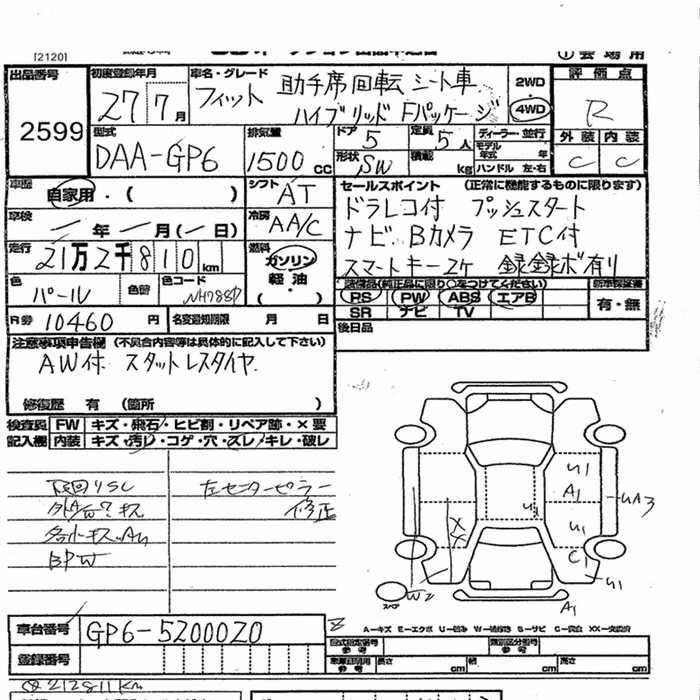 [2120]
① 会 場 用
出品番号 2599
初度登録年月 27 7月
車名・グレード フィット 助手席回転シート車
ハイブリッド Fパッケージ
2WD
4WD
評価点 R
外装 内装
C C
型式 DAA-GP6
排気量 1500cc
ドア 5 定員 5人
形状 SW 積載 kg
ディーラー・並行
モデル年式 年
ハンドル 左・右
車歴 自家用・( )
シフト AT
セールスポイント (正常に機能するものに限ります)
ドラレコ付 プッシュスタート
ナビ Bカメラ ETC付
スマートキー2ケ 録録ボ有り
車検 年 月(一日)
冷房 AA/C
走行 21万2千810km
燃料 ガソリン
軽油
( ・ )
色 パール 色替 色コード NH788P
装備品(純正品に限り○をつけてください)
PS PW ABS エアB
SR ナビ TV
新車保証書
有・無
R券 10460円
名変期限 月 日
後日品
注意事項申告欄 (不具合内容等は具体的に記入して下さい)
AW付 スタットレスタイヤ
修復歴 有 (箇所 )
検査員記入欄
FW キズ・飛石・ヒビ割・リペア跡・×要
内装 キズ・汚レ・コゲ・穴・ズレ・キレ・破レ
下回りSC
左センターピラー
修正
BPW
U1
A1
U1
UA3
U1
C1
U1
XX
W2
スペア
A1
A-キズ E-エクボ U-凹み W-補修跡 S-サビ C-腐食 XX-交換済
車台番号 GP6-5200020
登録番号
型式指定番号 参考
類別区分番号 参考
車庫証明用 参考 長さ cm 幅 cm 高さ cm
212811km